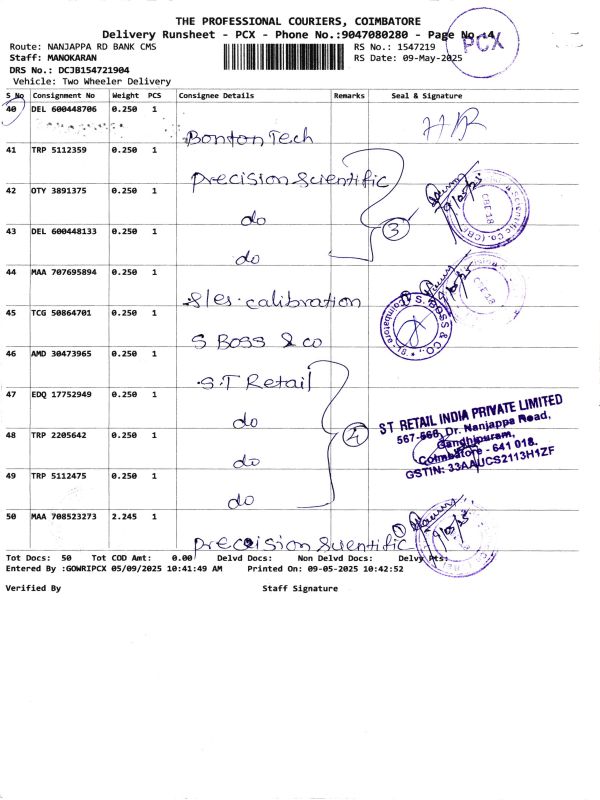 THE PROFESSIONAL COURIERS, COIMBATORE
Delivery Runsheet - PCX - Phone No.:9047080280 - Page No. :4/
PCX
Route: NANJAPPA RD BANK CMS
RS No.: 1547219
Staff: MANOKARAN
RS Date: 09-May-2025
DRS No.: DCJB154721904
Vehicle: Two Wheeler Delivery
S No Consignment No Weight PCS Consignee Details Remarks Seal & Signature
40 DEL 600448706 0.250 1
Bonton Tech
41 TRP 5112359 0.250 1
Precision Scientific
42 OTY 3891375 0.250 1
do
3
43 DEL 600448133 0.250 1
do
44 MAA 707695894 0.250 1
S/es. calibration
45 TCG 50864701 0.250 1
S Boss & co
46 AMD 30473965 0.250 1
S.T Retail
47 EDQ 17752949 0.250 1
do
4
48 TRP 2205642 0.250 1
do
49 TRP 5112475 0.250 1
do
50 MAA 708523273 2.245 1
Precision Scientific 1
CBE 18
9/05/25
CBE 18
S. BOSS & CO.,
Coimbatore
ST RETAIL INDIA PRIVATE LIMITED
567-568, Dr. Nanjappa Road,
Gandhipuram,
Coimbatore - 641 018.
GSTIN: 33AAUCS2113H1ZF
9/05/25
Tot Docs: 50 Tot COD Amt: 0.00 Delvd Docs: Non Delvd Docs: Delvy Pts:
Entered By :GOWRIPCX 05/09/2025 10:41:49 AM Printed On: 09-05-2025 10:42:52
Verified By Staff Signature